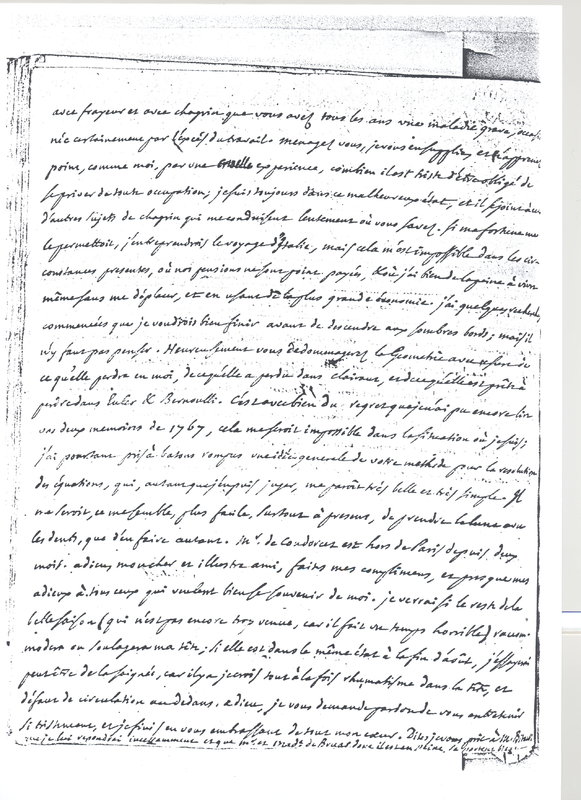 avec frayeur et avec chagrin que vous avez tous les ans une maladie grave, occasio
née certainement par l'excès du travail. menagez vous, je vous en supplie, et n'apprenez
point, comme moi, par une cruelle experience, combien il est triste d'être obligé de
se priver de toute occupation; je suis toujours dans ce malheureux état, et il se joint à cela
d'autres sujets de chagrin qui me conduisent lentement où vous savez. si ma fortune me
le permettoit, j'entreprendrois le voyage d'Italie, mais cela m'est impossible dans les cir-
constances presentes, où nos pensions ne sont point payées, & où j'ai bien de la peine à vivre
même sans me déplacer, et en usant de la plus grande économie. j'ai quelques recherches
commencées que je voudrois bien finir avant de descendre aux sombres bords; mais il
n'y faut pas penser. Heureusement vous dedommagerez la Geometrie avec usure de
ce qu'elle perdra en moi, de ce qu'elle a perdu dans Clairaut, et de ce qu'elle est prête à
perdre dans Euler & Bernoulli. C'est avec bien du regret que je n'ai pu encore lire
vos deux memoires de 1767, cela me seroit impossible dans la situation où je suis;
j'ai pourtant pris à batons rompus une idée generale de votre methode pour la resolution
des équations, qui, autant que j'en puis juger, me paroît très belle et très simple. Il
me seroit, ce me semble, plus facile, surtout à present, de prendre la lune avec
les dents, que d'en faire autant. Mr. de Condorcet est hors de Paris depuis deux
mois. adieu, mon cher et illustre ami, faites mes complimens, et presque mes
adieux à tous ceux qui veulent bien se souvenir de moi. je verrai si le reste de la
belle saison (qui n'est pas encore trop venue, car il fait un temps horrible)
modera ou soulagera ma tête; si elle est dans le même état à la fin d'août, j'essayerai
peut être de la saignée, car il y a je crois tout à la fois rhumatisme dans la tête, et
défaut de circulation au dedans. adieu, je vous demande pardon de vous entretenir
si tristement, et je finis en vous embrassant de tout mon cœur. Dites je vous prie à Mr.
que je lui repondrai incessamment et que Mr. et Made. de